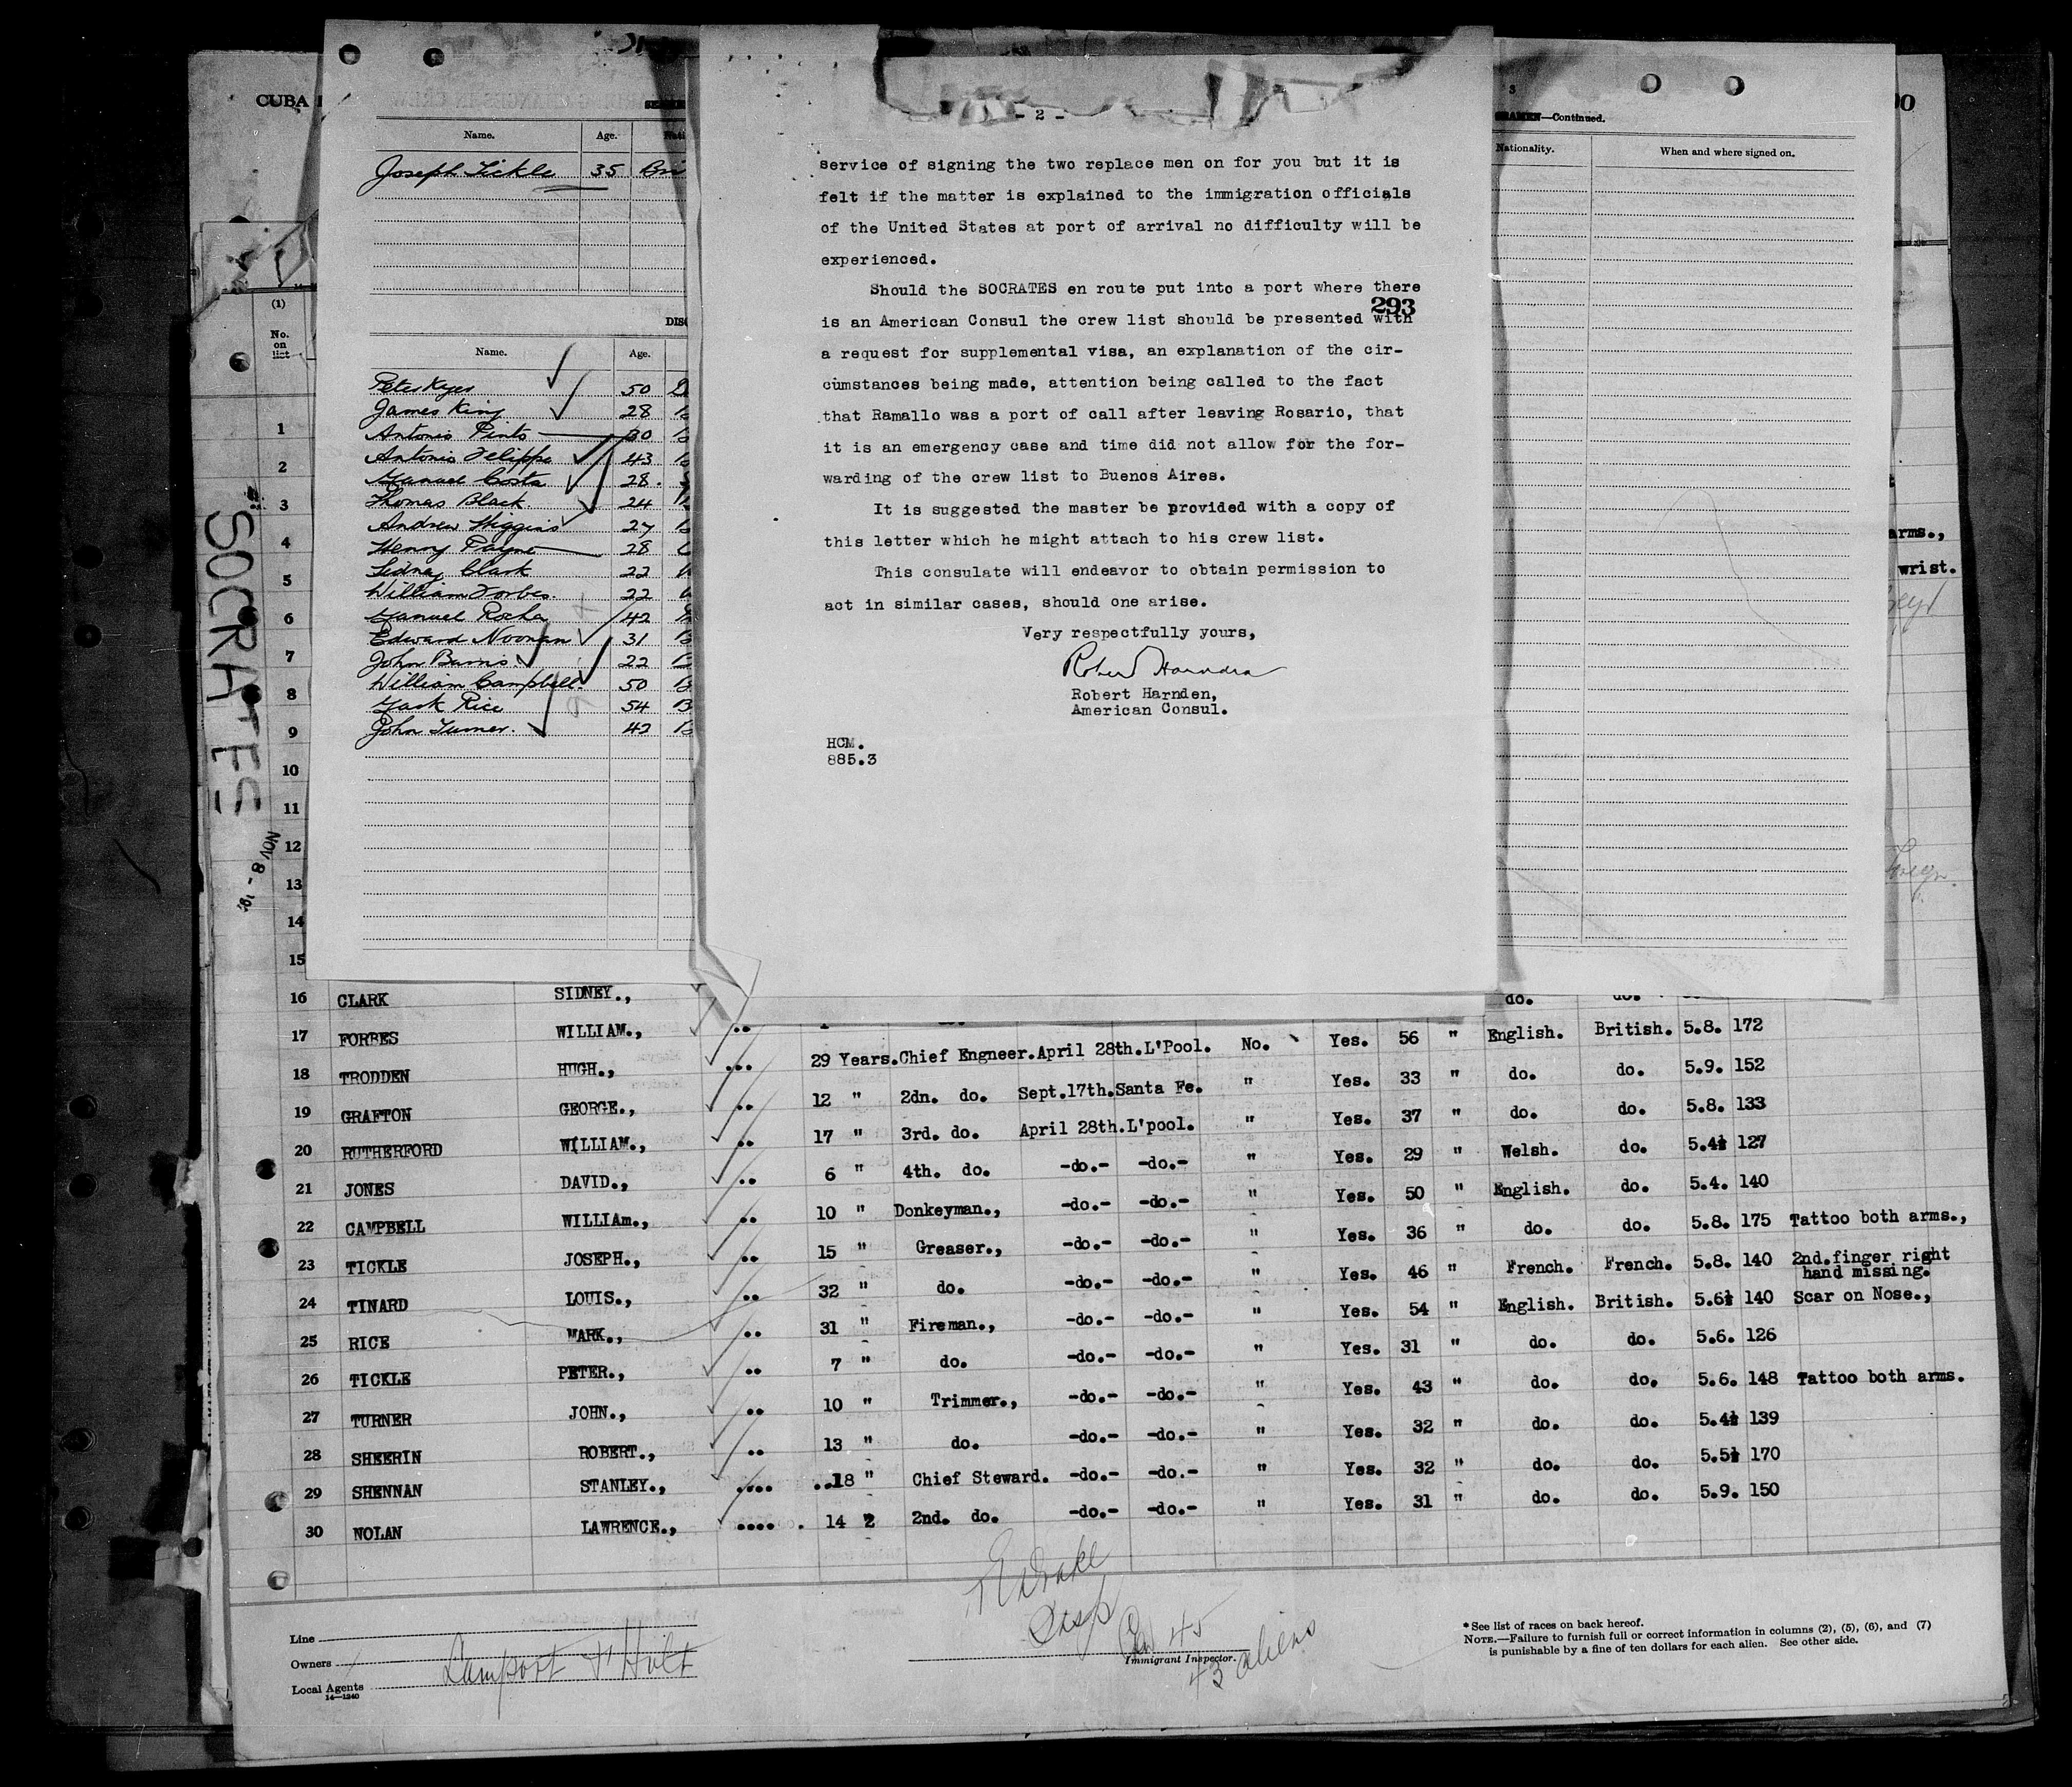 CUBA
00
(1)
No.
on
list
SOCRATES
NOV 8 - 192
1
2
3
4
5
6
7
8
9
10
11
12
13
14
15
Name. Age.
Joseph Tickle 35
Name. Age.
Peter Keyes 50
James King 28
Antonio Pinto 30
Antonio Felippe 43
Manuel Costa 28.
Thomas Black 24
Andrew Higgins 27
Henry Payne 28
Sidney Clark 22
William Forbes. 22
Manuel Rocha 42
Edward Noonan 31
John Burns. 22
William Campbell. 50
Mark Rice 54
John Turner. 42
- 2 -
service of signing the two replace men on for you but it is
felt if the matter is explained to the immigration officials
of the United States at port of arrival no difficulty will be
experienced.
Should the SOCRATES en route put into a port where there
293
is an American Consul the crew list should be presented with
a request for supplemental visa, an explanation of the cir-
cumstances being made, attention being called to the fact
that Ramallo was a port of call after leaving Rosario, that
it is an emergency case and time did not allow for the for-
warding of the crew list to Buenos Aires.
It is suggested the master be provided with a copy of
this letter which he might attach to his crew list.
This consulate will endeavor to obtain permission to
act in similar cases, should one arise.
Very respectfully yours,
Robert Harnden
Robert Harnden,
American Consul.
HCM.
885.3
3
SEAMEN—Continued.
Nationality. When and where signed on.
arms.,
wrist.
16 CLARK SIDNEY., do. do.
17 FORBES WILLIAM.,
18 TRODDEN HUGH., 29 Years. Chief Engneer. April 28th. L'Pool. No. Yes. 56 " English. British. 5.8. 172
19 GRAFTON GEORGE., 12 " 2dn. do. Sept.17th. Santa Fe. " Yes. 33 " do. do. 5.9. 152
20 RUTHERFORD WILLIAM., 17 " 3rd. do. April 28th. L'pool. " Yes. 37 " do. do. 5.8. 133
21 JONES DAVID., 6 " 4th. do. -do.- -do.- " Yes. 29 " Welsh. do. 5.4½ 127
22 CAMPBELL WILLIAm., 10 " Donkeyman., -do.- -do.- " Yes. 50 " English. do. 5.4. 140
23 TICKLE JOSEPH., 15 " Greaser., -do.- -do.- " Yes. 36 " do. do. 5.8. 175 Tattoo both arms.,
24 TINARD LOUIS., 32 " do. -do.- -do.- " Yes. 46 " French. French. 5.8. 140 2nd.finger right
hand missing.
25 RICE MARK., 31 " Fireman., -do.- -do.- " Yes. 54 " English. British. 5.6½ 140 Scar on Nose.,
26 TICKLE PETER., 7 " do. -do.- -do.- " Yes. 31 " do. do. 5.6. 126
27 TURNER JOHN., 10 " Trimmer., -do.- -do.- " Yes. 43 " do. do. 5.6. 148 Tattoo both arms.
28 SHEERIN ROBERT., 13 " do. -do.- -do.- " Yes. 32 " do. do. 5.4½ 139
29 SHENNAN STANLEY., 18 " Chief Steward. -do.- -do.- " Yes. 32 " do. do. 5.5½ 170
30 NOLAN LAWRENCE., 14 2 2nd. do. -do.- -do.- " Yes. 31 " do. do. 5.9. 150
Line
Owners
Local Agents Lamport & Holt
14—1240
Drake
Insp
45
Immigrant Inspector.
43 aliens
* See list of races on back hereof.
NOTE.—Failure to furnish full or correct information in columns (2), (5), (6), and (7)
is punishable by a fine of ten dollars for each alien. See other side.